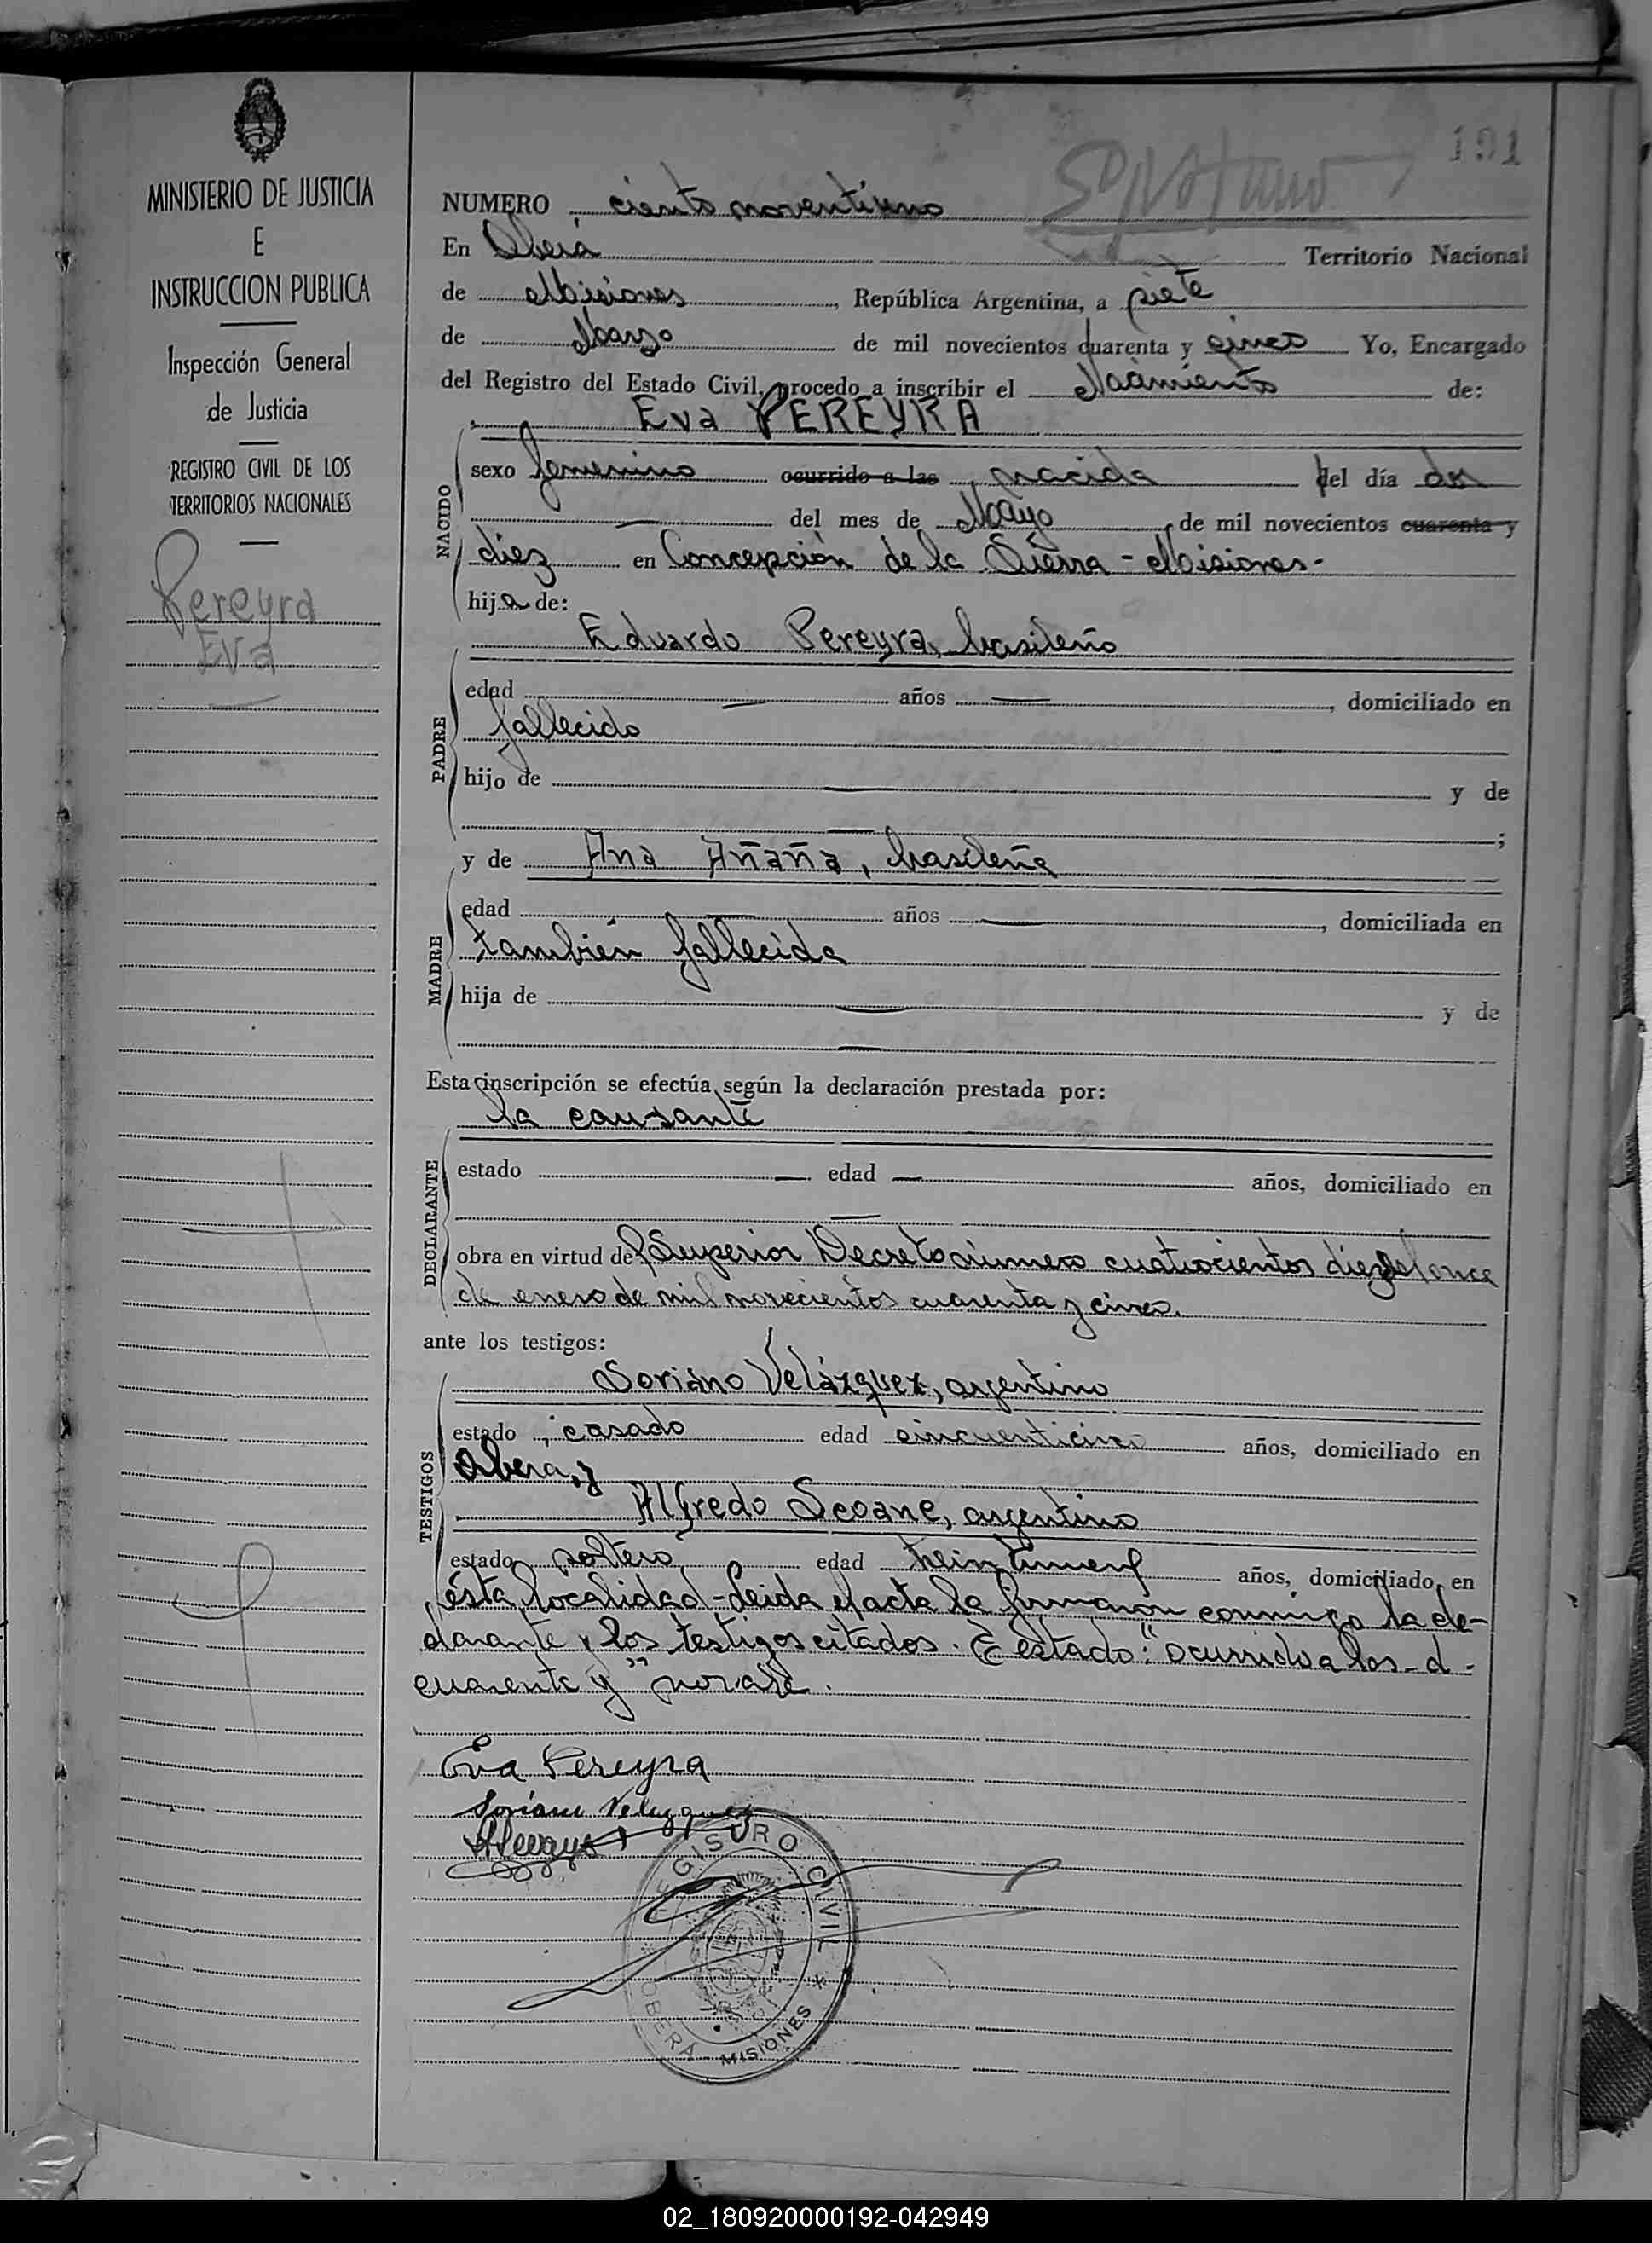 MINISTERIO DE JUSTICIA
E
INSTRUCCION PUBLICA
Inspección General
de Justicia
REGISTRO CIVIL DE LOS
TERRITORIOS NACIONALES
Pereyra
Eva
191
NUMERO ciento noventiuno
En Oberá Territorio Nacional
de Misiones, República Argentina, a siete
de Marzo de mil novecientos cuarenta y cinco Yo, Encargado
del Registro del Estado Civil, procedo a inscribir el Nacimiento de:
Eva PEREYRA
NACIDO
sexo femenino ocurrido a las, nacida del día dos
del mes de Mayo, de mil novecientos cuarenta y
diez en Concepción de la Sierra - Misiones-
hija de:
Eduardo Pereyra, brasileño
PADRE
edad — años —, domiciliado en
fallecido
hijo de — y de
— ;
y de Ana Añaña, brasileña
MADRE
edad — años —, domiciliada en
también fallecida
hija de — y de
—
Esta inscripción se efectúa según la declaración prestada por:
la causante
DECLARANTE
estado — edad — años, domiciliado en
—
obra en virtud del Superior Decreto número cuatrocientos diez del once
de enero de mil novecientos cuarenta y cinco.
ante los testigos:
TESTIGOS
Soriano Velázquez, argentino
estado, casado edad cincuenticinco años, domiciliado en
Oberá, y
Alfredo Seoane, argentino
estado soltero edad años, domiciliado en
ésta localidad - Leida el acta la firmaron conmigo la de-
clarante y los testigos citados. E estado: "ocurrido a las - d -
cuarenta y" no vale.
Eva Pereyra
Soriano Velazquez
REGISTRO CIVIL
* OBERA - MISIONES *
02_180920000192-042949